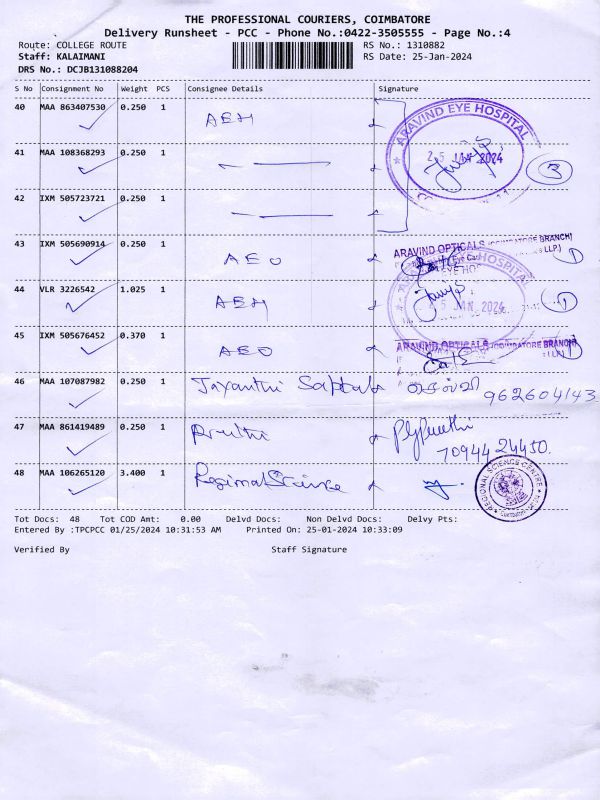 THE PROFESSIONAL COURIERS, COIMBATORE
Delivery Runsheet - PCC - Phone No.:0422-3505555 - Page No.:4
Route: COLLEGE ROUTE RS No.: 1310882
Staff: KALAIMANI RS Date: 25-Jan-2024
DRS No.: DCJB131088204
S No Consignment No Weight PCS Consignee Details Signature
40 MAA 863407530 0.250 1 AEH
ARAVIND EYE HOSPITAL
25 JAN 2024
41 MAA 108368293 0.250 1
3
42 IXM 505723721 0.250 1
43 IXM 505690914 0.250 1 AEO
ARAVIND OPTICALS (COIMBATORE BRANCH)
1
44 VLR 3226542 1.025 1 AEH
EYE HOSPITAL
25 JAN 2024
1
45 IXM 505676452 0.370 1 AEO
ARAVIND OPTICALS (COIMBATORE BRANCH)
46 MAA 107087982 0.250 1 Jayanthi செல்வி
962604143
47 MAA 861419489 0.250 1 Pruthi
7094424450.
48 MAA 106265120 3.400 1 Regional Science
REGIONAL SCIENCE CENTRE
Tot Docs: 48 Tot COD Amt: 0.00 Delvd Docs: Non Delvd Docs: Delvy Pts:
Entered By :TPCPCC 01/25/2024 10:31:53 AM Printed On: 25-01-2024 10:33:09
Verified By Staff Signature